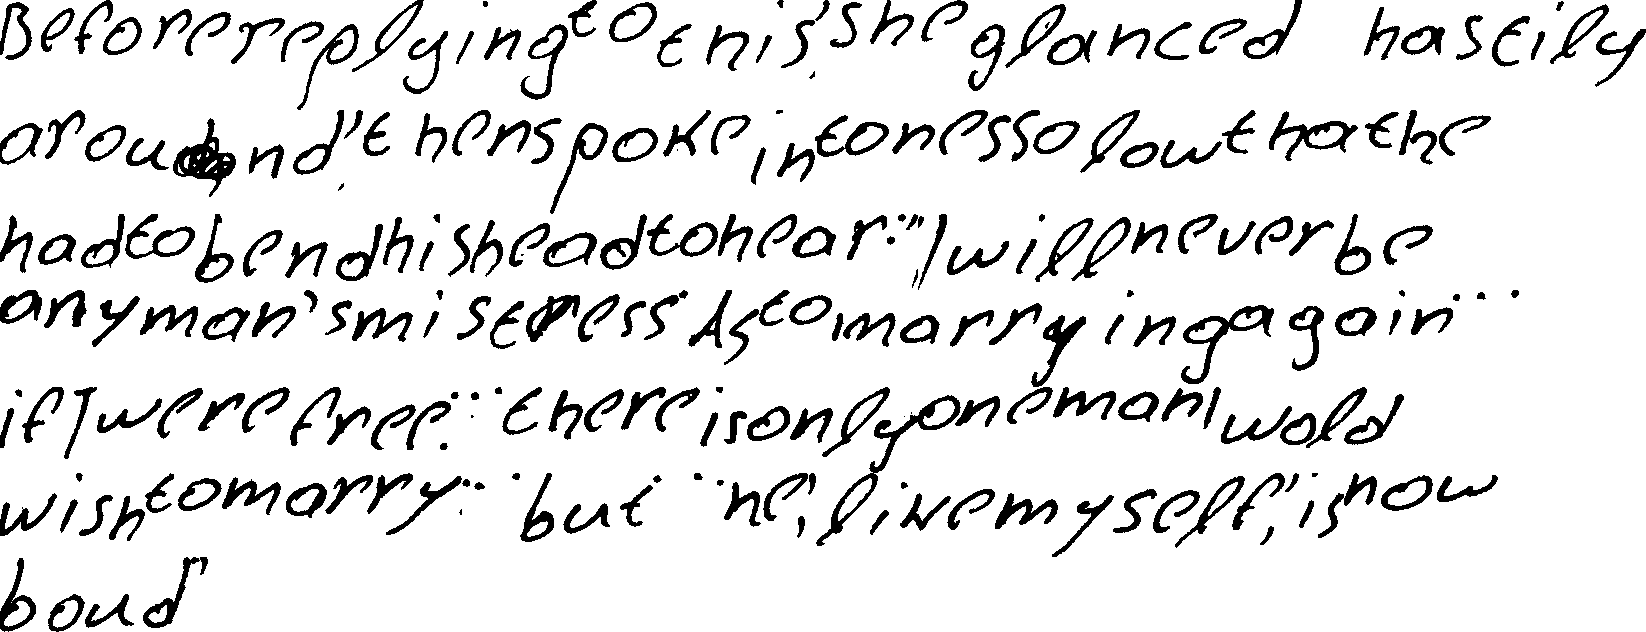 Before replying to this, she glanced hastily
around, then spoke in tones so low that he
had to bend his head to hear. "I will never be
any man's mistress. As to marrying again...
if I were free... there is only one man I wold
wish to marry... but... he, like myself, is now
boud"